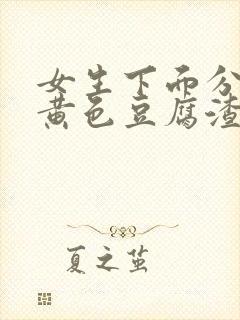 女生下面分
黄色豆腐渣
夏之茧